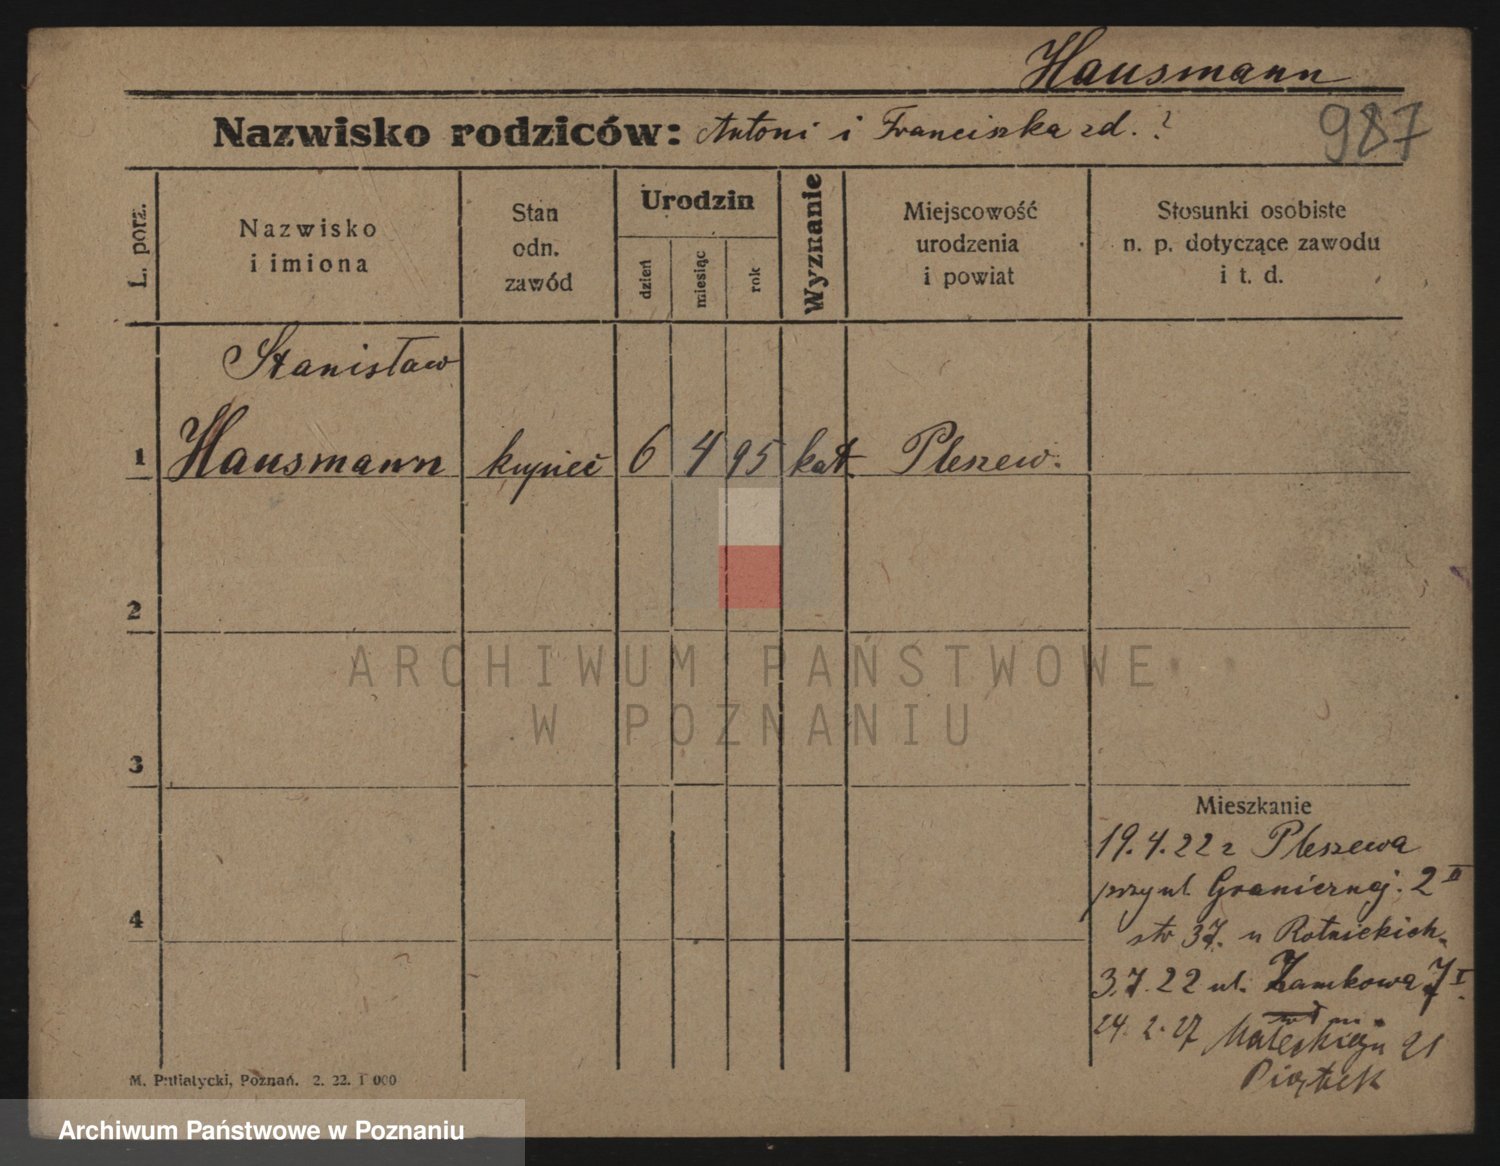 Hausmann
987
Nazwisko rodziców: Antoni i Franciszka zd. ?
L. porz.
Nazwisko
i imiona
Stan
odn.
zawód
Urodzin
dzień
miesiąc
rok
Wyznanie
Miejscowość
urodzenia
i powiat
Stosunki osobiste
n. p. dotyczące zawodu
i t. d.
Stanisław
1 Hausmann kupiec 6 4 95 kat. Pleszew.
2
ARCHIWUM PAŃSTWOWE
W POZNANIU
3
Mieszkanie
19.4.22 z Pleszewa
przy ul. Granicznej. 2 II
str 37. u Rotnickich.
4
3.7.22 ul. Zamkowa 7 I.
24. 2. 27 21
Piątek
M. Putiatycki, Poznań. 2. 22. 1 000
Archiwum Państwowe w Poznaniu